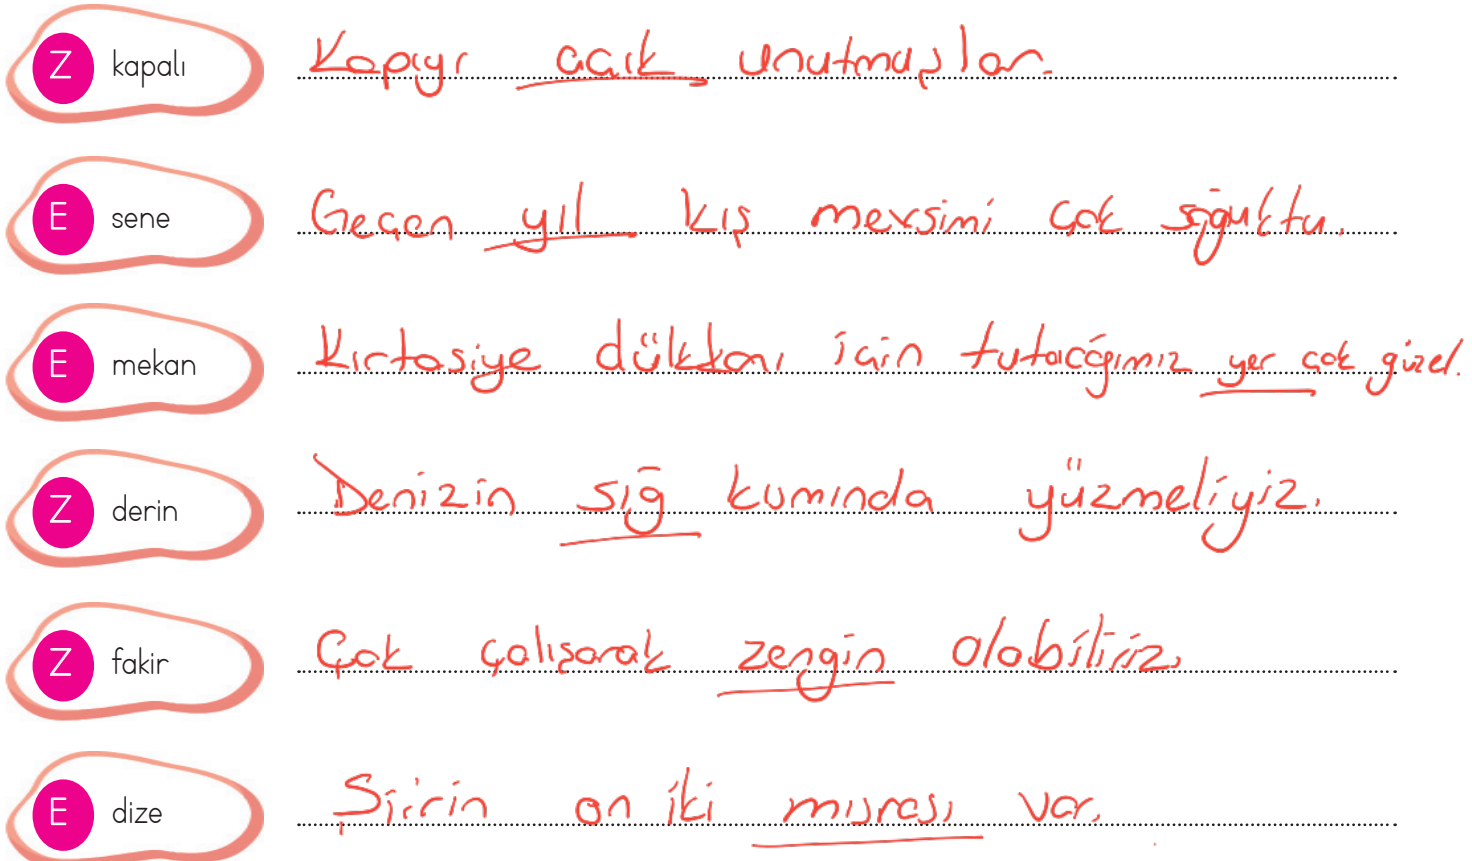 Z kapalı Kapıyı açık unutmuşlar.
E sene Geçen yıl kış mevsimi çok soğuktu.
E mekan Kırtasiye dükkanı için tutacağımız yer çok güzel.
Z derin Denizin sığ kumında yüzmeliyiz.
Z fakir Çok çalışarak zengin olabiliriz.
E dize Şiirin on iki mısrası var.